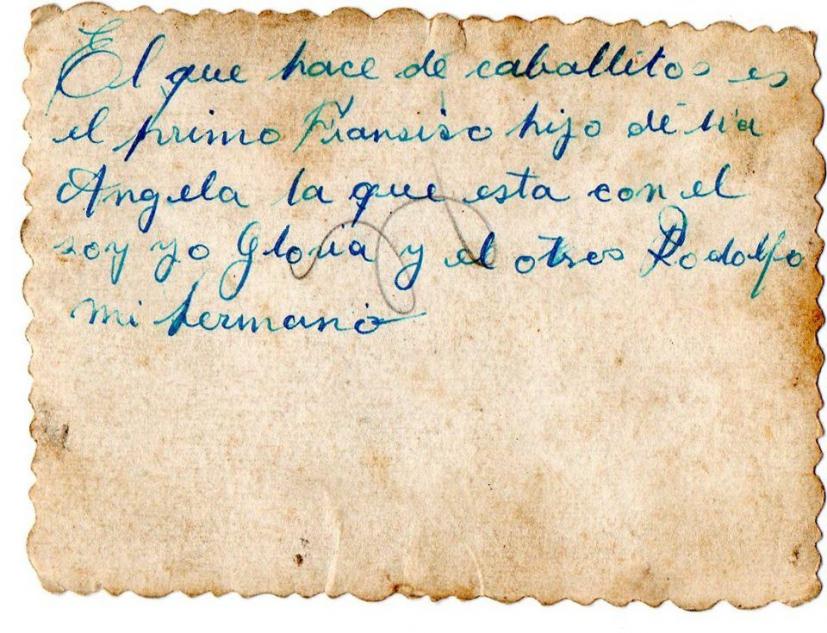 El que hace de caballitos es
el primo Fransisco hijo de tia
Angela la que esta con el
soy yo Gloria y el otro es Rodolfo
mi hermano